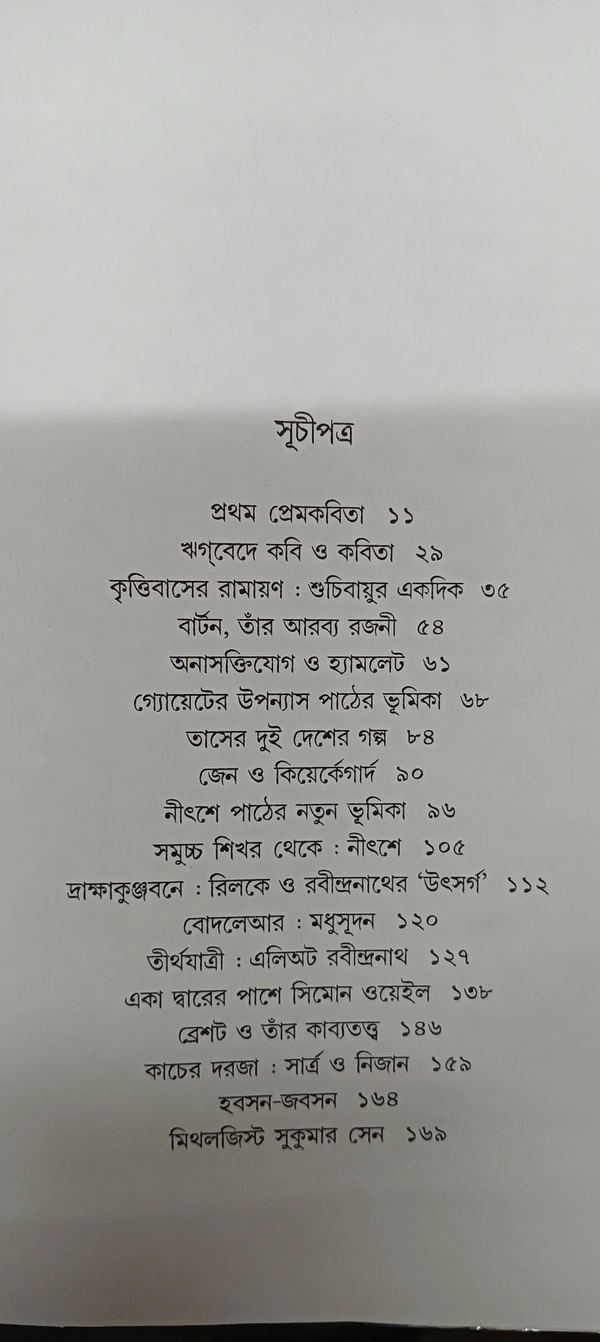 সূচীপত্র
প্রথম প্রেমকবিতা ১১
ঋগ্‌বেদে কবি ও কবিতা ২৯
কৃত্তিবাসের রামায়ণ : শুচিবায়ুর একদিক ৩৫
বার্টন, তাঁর আরব্য রজনী ৫৪
অনাসক্তিযোগ ও হ্যামলেট ৬১
গ্যোয়েটের উপন্যাস পাঠের ভূমিকা ৬৮
তাসের দুই দেশের গল্প ৮৪
জেন ও কিয়ের্কেগার্দ ৯০
নীৎশে পাঠের নতুন ভূমিকা ৯৬
সমুচ্চ শিখর থেকে : নীৎশে ১০৫
দ্রাক্ষাকুঞ্জবনে : রিলকে ও রবীন্দ্রনাথের ‘উৎসর্গ’ ১১২
বোদলেআর : মধুসূদন ১২০
তীর্থযাত্রী : এলিঅট রবীন্দ্রনাথ ১২৭
একা দ্বারের পাশে সিমোন ওয়েইল ১৩৮
ব্রেশট ও তাঁর কাব্যতত্ত্ব ১৪৬
কাচের দরজা : সার্ত্র ও নিজান ১৫৯
হবসন-জবসন ১৬৪
মিথলজিস্ট সুকুমার সেন ১৬৯